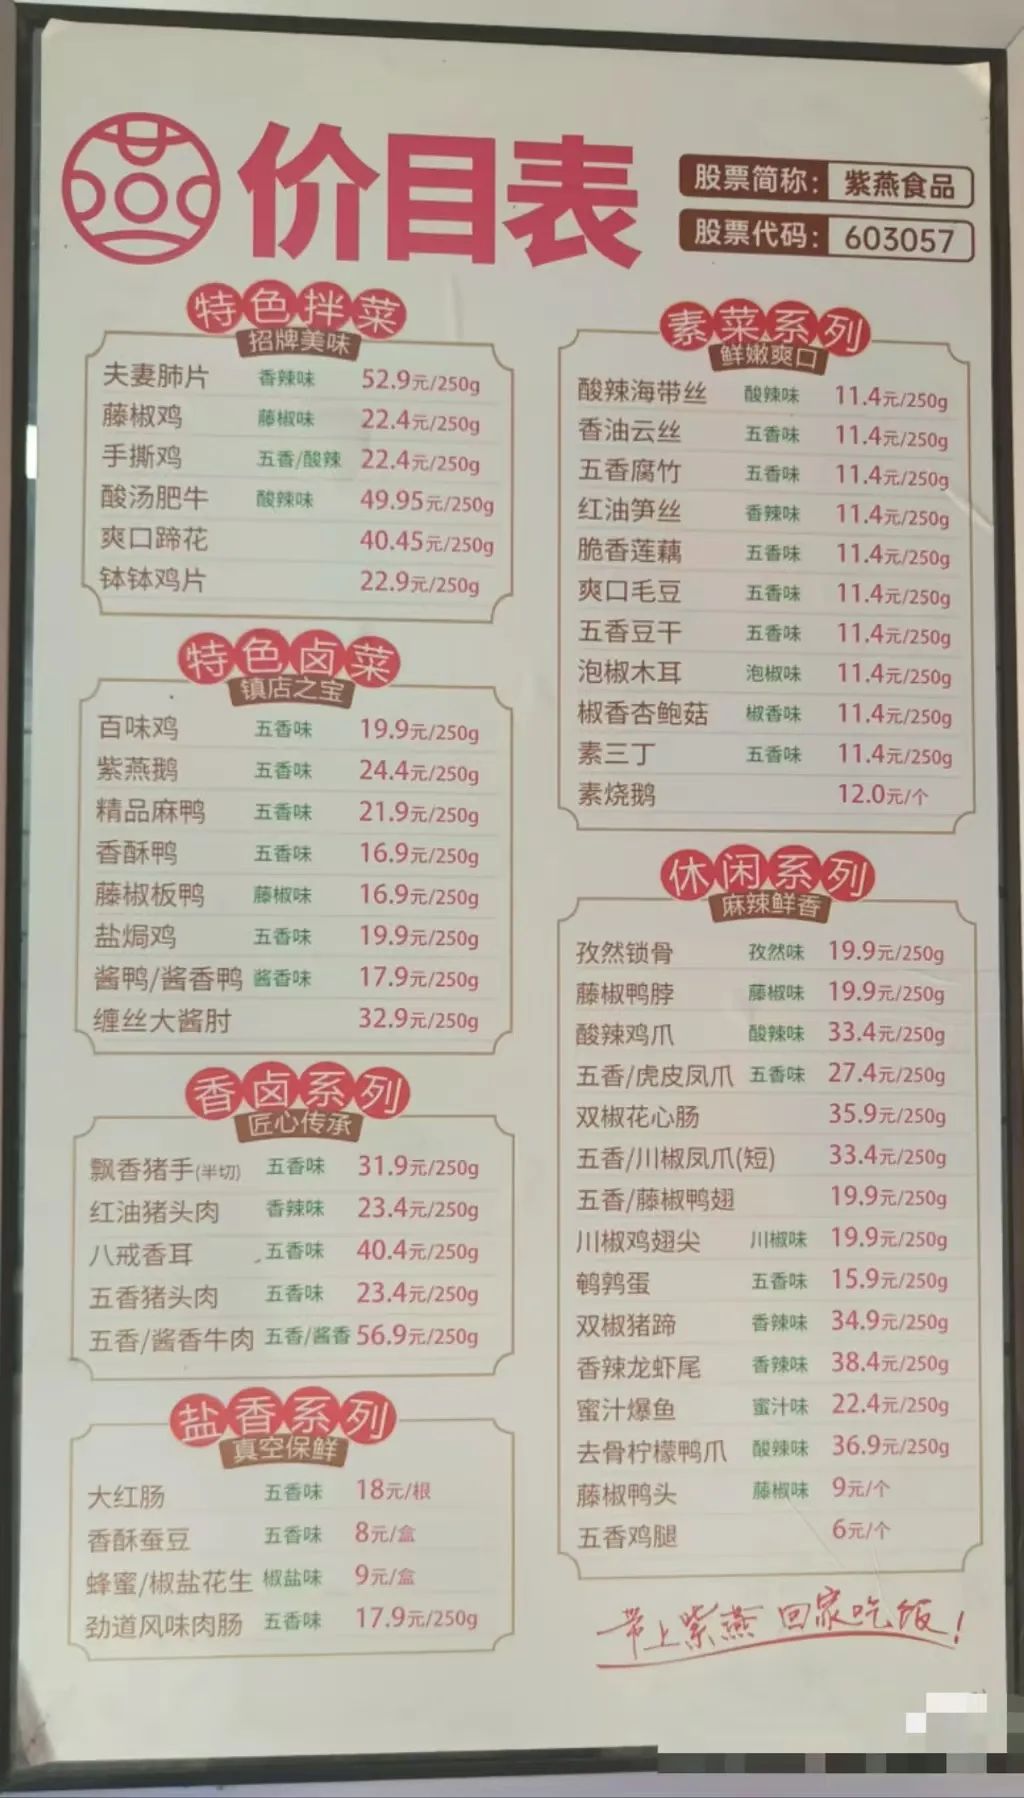 价目表
股票简称：紫燕食品
股票代码：603057
特色拌菜
招牌美味
夫妻肺片 香辣味 52.9元/250g
藤椒鸡 藤椒味 22.4元/250g
手撕鸡 五香/酸辣 22.4元/250g
酸汤肥牛 酸辣味 49.95元/250g
爽口蹄花 40.45元/250g
钵钵鸡片 22.9元/250g
特色卤菜
镇店之宝
百味鸡 五香味 19.9元/250g
紫燕鹅 五香味 24.4元/250g
精品麻鸭 五香味 21.9元/250g
香酥鸭 五香味 16.9元/250g
藤椒板鸭 藤椒味 16.9元/250g
盐焗鸡 五香味 19.9元/250g
酱鸭/酱香鸭 酱香味 17.9元/250g
缠丝大酱肘 32.9元/250g
香卤系列
匠心传承
飘香猪手(半切) 五香味 31.9元/250g
红油猪头肉 香辣味 23.4元/250g
八戒香耳 五香味 40.4元/250g
五香猪头肉 五香味 23.4元/250g
五香/酱香牛肉 五香/酱香 56.9元/250g
盐香系列
真空保鲜
大红肠 五香味 18元/根
香酥蚕豆 五香味 8元/盒
蜂蜜/椒盐花生 椒盐味 9元/盒
劲道风味肉肠 五香味 17.9元/250g
素菜系列
鲜嫩爽口
酸辣海带丝 酸辣味 11.4元/250g
香油云丝 五香味 11.4元/250g
五香腐竹 五香味 11.4元/250g
红油笋丝 香辣味 11.4元/250g
脆香莲藕 五香味 11.4元/250g
爽口毛豆 五香味 11.4元/250g
五香豆干 五香味 11.4元/250g
泡椒木耳 泡椒味 11.4元/250g
椒香杏鲍菇 椒香味 11.4元/250g
素三丁 五香味 11.4元/250g
素烧鹅 12.0元/个
休闲系列
麻辣鲜香
孜然锁骨 孜然味 19.9元/250g
藤椒鸭脖 藤椒味 19.9元/250g
酸辣鸡爪 酸辣味 33.4元/250g
五香/虎皮凤爪 五香味 27.4元/250g
双椒花心肠 35.9元/250g
五香/川椒凤爪(短) 33.4元/250g
五香/藤椒鸭翅 19.9元/250g
川椒鸡翅尖 川椒味 19.9元/250g
鹌鹑蛋 五香味 15.9元/250g
双椒猪蹄 香辣味 34.9元/250g
香辣龙虾尾 香辣味 38.4元/250g
蜜汁爆鱼 蜜汁味 22.4元/250g
去骨柠檬鸭爪 酸辣味 36.9元/250g
藤椒鸭头 藤椒味 9元/个
五香鸡腿 6元/个
带上紫燕 回家吃饭！